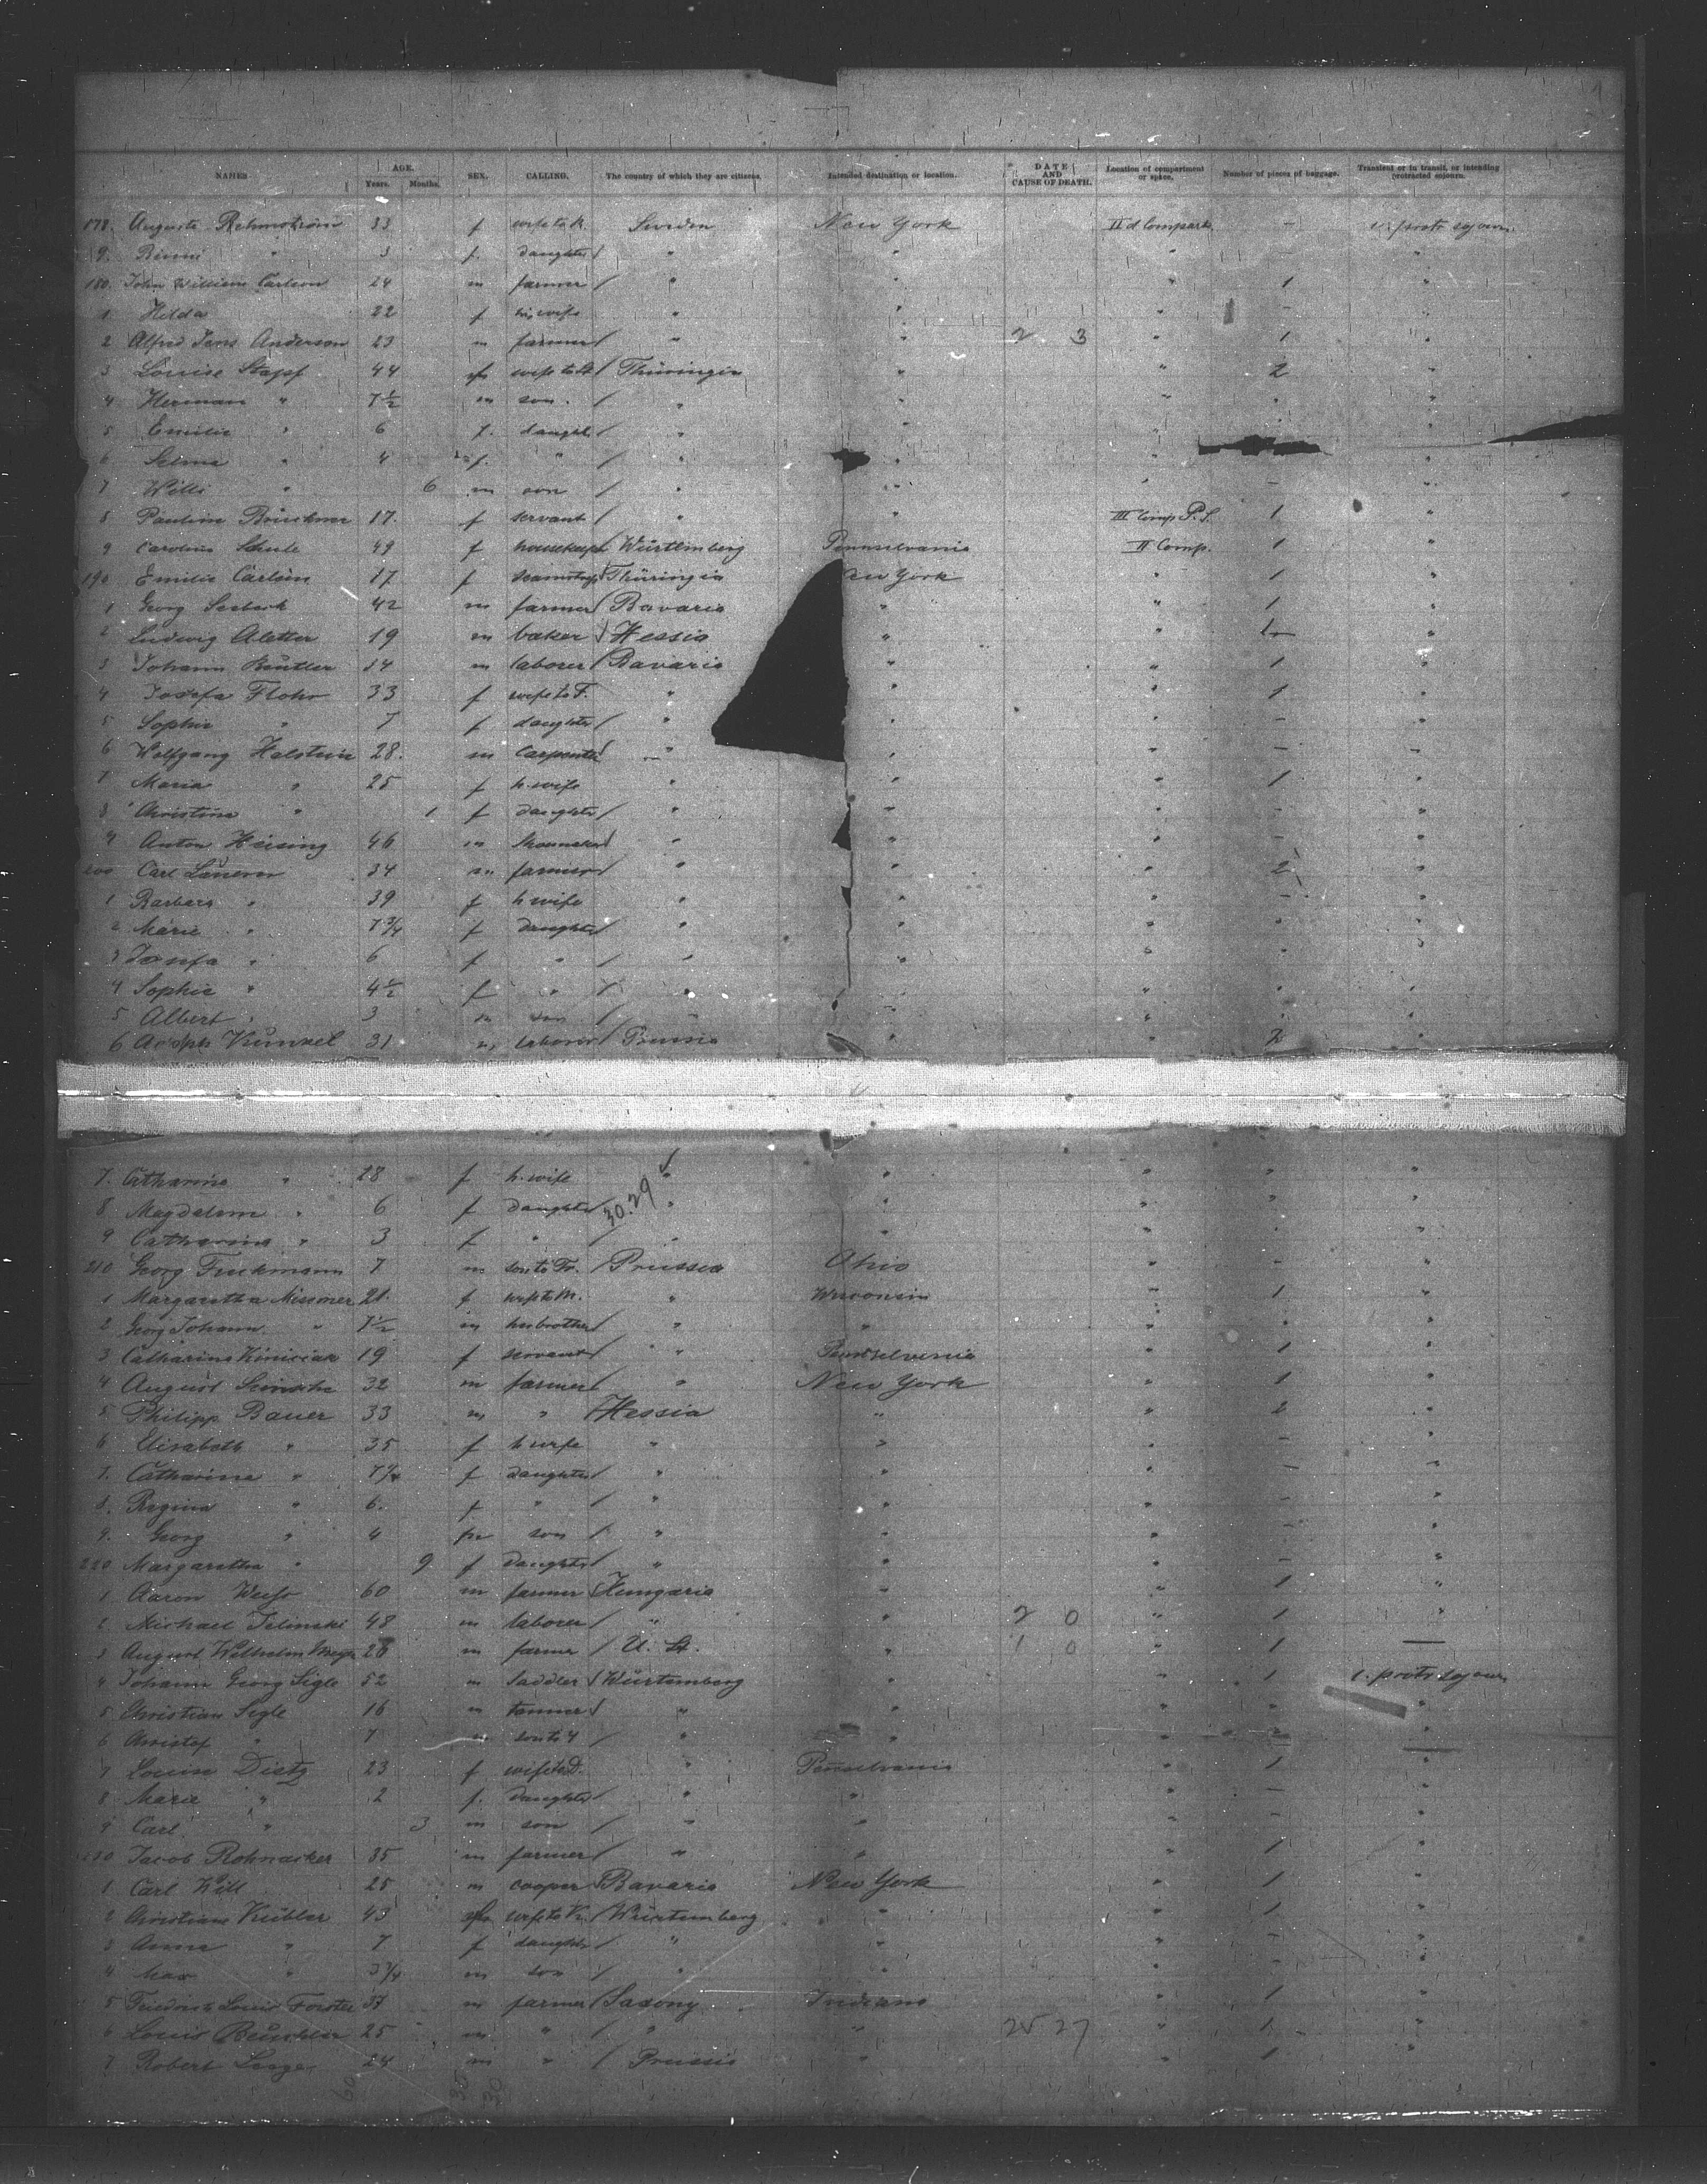 NAMES. AGE. Years. Months. SEX. CALLING. The country of which they are citizens. Intended destination or location. DATE AND CAUSE OF DEATH. Location of compartment or space. Number of pieces of baggage. Transient or in transit, or intending protracted sojourn.
178. Auguste 33 f wife to R. Sweden New York IId Compart. –
9. " 3 f. daughter / " " " – "
180. John William Carlson 24 m farmer / " " " 1 "
1 Hilda 22 f his wife " " " – "
2 Alfred Anderson 23 m farmer / " " 2 3 " 1 "
3 Louise Stapf 44 f wife to St / Thüringia " " 2 "
4 Herman " 7½ m son. / " " " " "
5 Emilie " 6 f. daught / " " " "
6 Selma " 4 f. " / " " " "
7 Willi " 6 m son / " " " – "
8 Pauline Brückner 17. f servant / " " III Comp P.S. 1 "
9 Caroline 49 f Würtemberg Pennsilvania II Comp. 1 "
190 Emilie 17 f Thüringia ew York " 1 "
1 Georg 42 m farmer / Bavaria " " 1 "
2 Ludwig Aletter 19 m baker / Hessia " " 1 "
3 Johann Beutler m laborer / Bavaria " " 1 "
4 Josefa Flohr 33 f wife to F. " " " 1 "
5 Sophie " 7 f daughter / " " " – "
6 Wolfgang Halstein 28. m Carpenter / " " " – –
7 Maria " 25 f h. wife " " " 1 "
8 Christine " 1 f daughter / " " " – "
9 Anton Heising 46 m / " " " – "
200 Carl 34 m farmer / " " 2 "
1 Barbara " 39 f h wife " " " "
2 Marie " 7¾ f daughter / " " " "
3 Josefa " 6 f " / " " " " "
4 Sophie " 4½ f " / " " " "
5 Albert " 3 m son / " " " "
6 Adolph Künkel 31 m laborer / Prussia " " 2 "
7. Catharine " 28 f h. wife " " " " "
8 Magdalena " 6 f daughter / 30.29 " " " " "
9 Catharina " 3 f " / " " " "
210 Georg 7 m son to Fr. / Prussia Ohio " – "
1 Margaretha Missmer 21. f " Wisconsin " 1 "
2 Georg Johann " 7½ m her brother / " " " " "
3 Catharina 19 f servant / " Pennsilvenia " 1 "
4 August 32 m farmer / " New York " 1 "
5 Philipp Bauer 33 m " / Hessia " " 2 "
6 Elisabeth " 35 f h wife " " " – "
7. Catharine " f daughter / " " " – "
8. Regina " 6. f " / " " " – "
9. Georg " 4 m son / " " " – "
220 Margaretha " 9 f daughter / " " " – "
1 Aaron 60 m farmer / Hungaria " " 1 "
2 Michael 48 m laborer / " " 2 0 " 1 "
3 August Wilhelm 26 m farmer / U. St. " 1 0 " 1 —
4 Johann Georg Sigle 52 m Saddler / Würtemberg " 1 protr sojour
5 Christian Sigle 16 m tanner / " " " " "
6 Christof " 7 m / " " " "
7 Louise Dietz 23 f wife to D. " Pennsilvania " 1 "
8 Marie " 2 f. daughter / " " " – "
9 Carl " 3 m son / " " " – "
230 Jacob Rohnacker 35 m farmer / " " " 1 "
1 Carl 25 m cooper / Bavaria New York " 1 "
2 Christiane Kübler 43 f wife to K. / Würtemberg " " 1 "
3 Anna " 7 f daughter / " " " – "
4 Max " 3¾ m son / " " " – "
5 Friedrich Louis Forster 37 m farmer / Saxony Indiana " 1 "
6 Louis 25 m " / " " 25 27 " 1 "
7 Robert 24 m " / Prussia " " 1 "